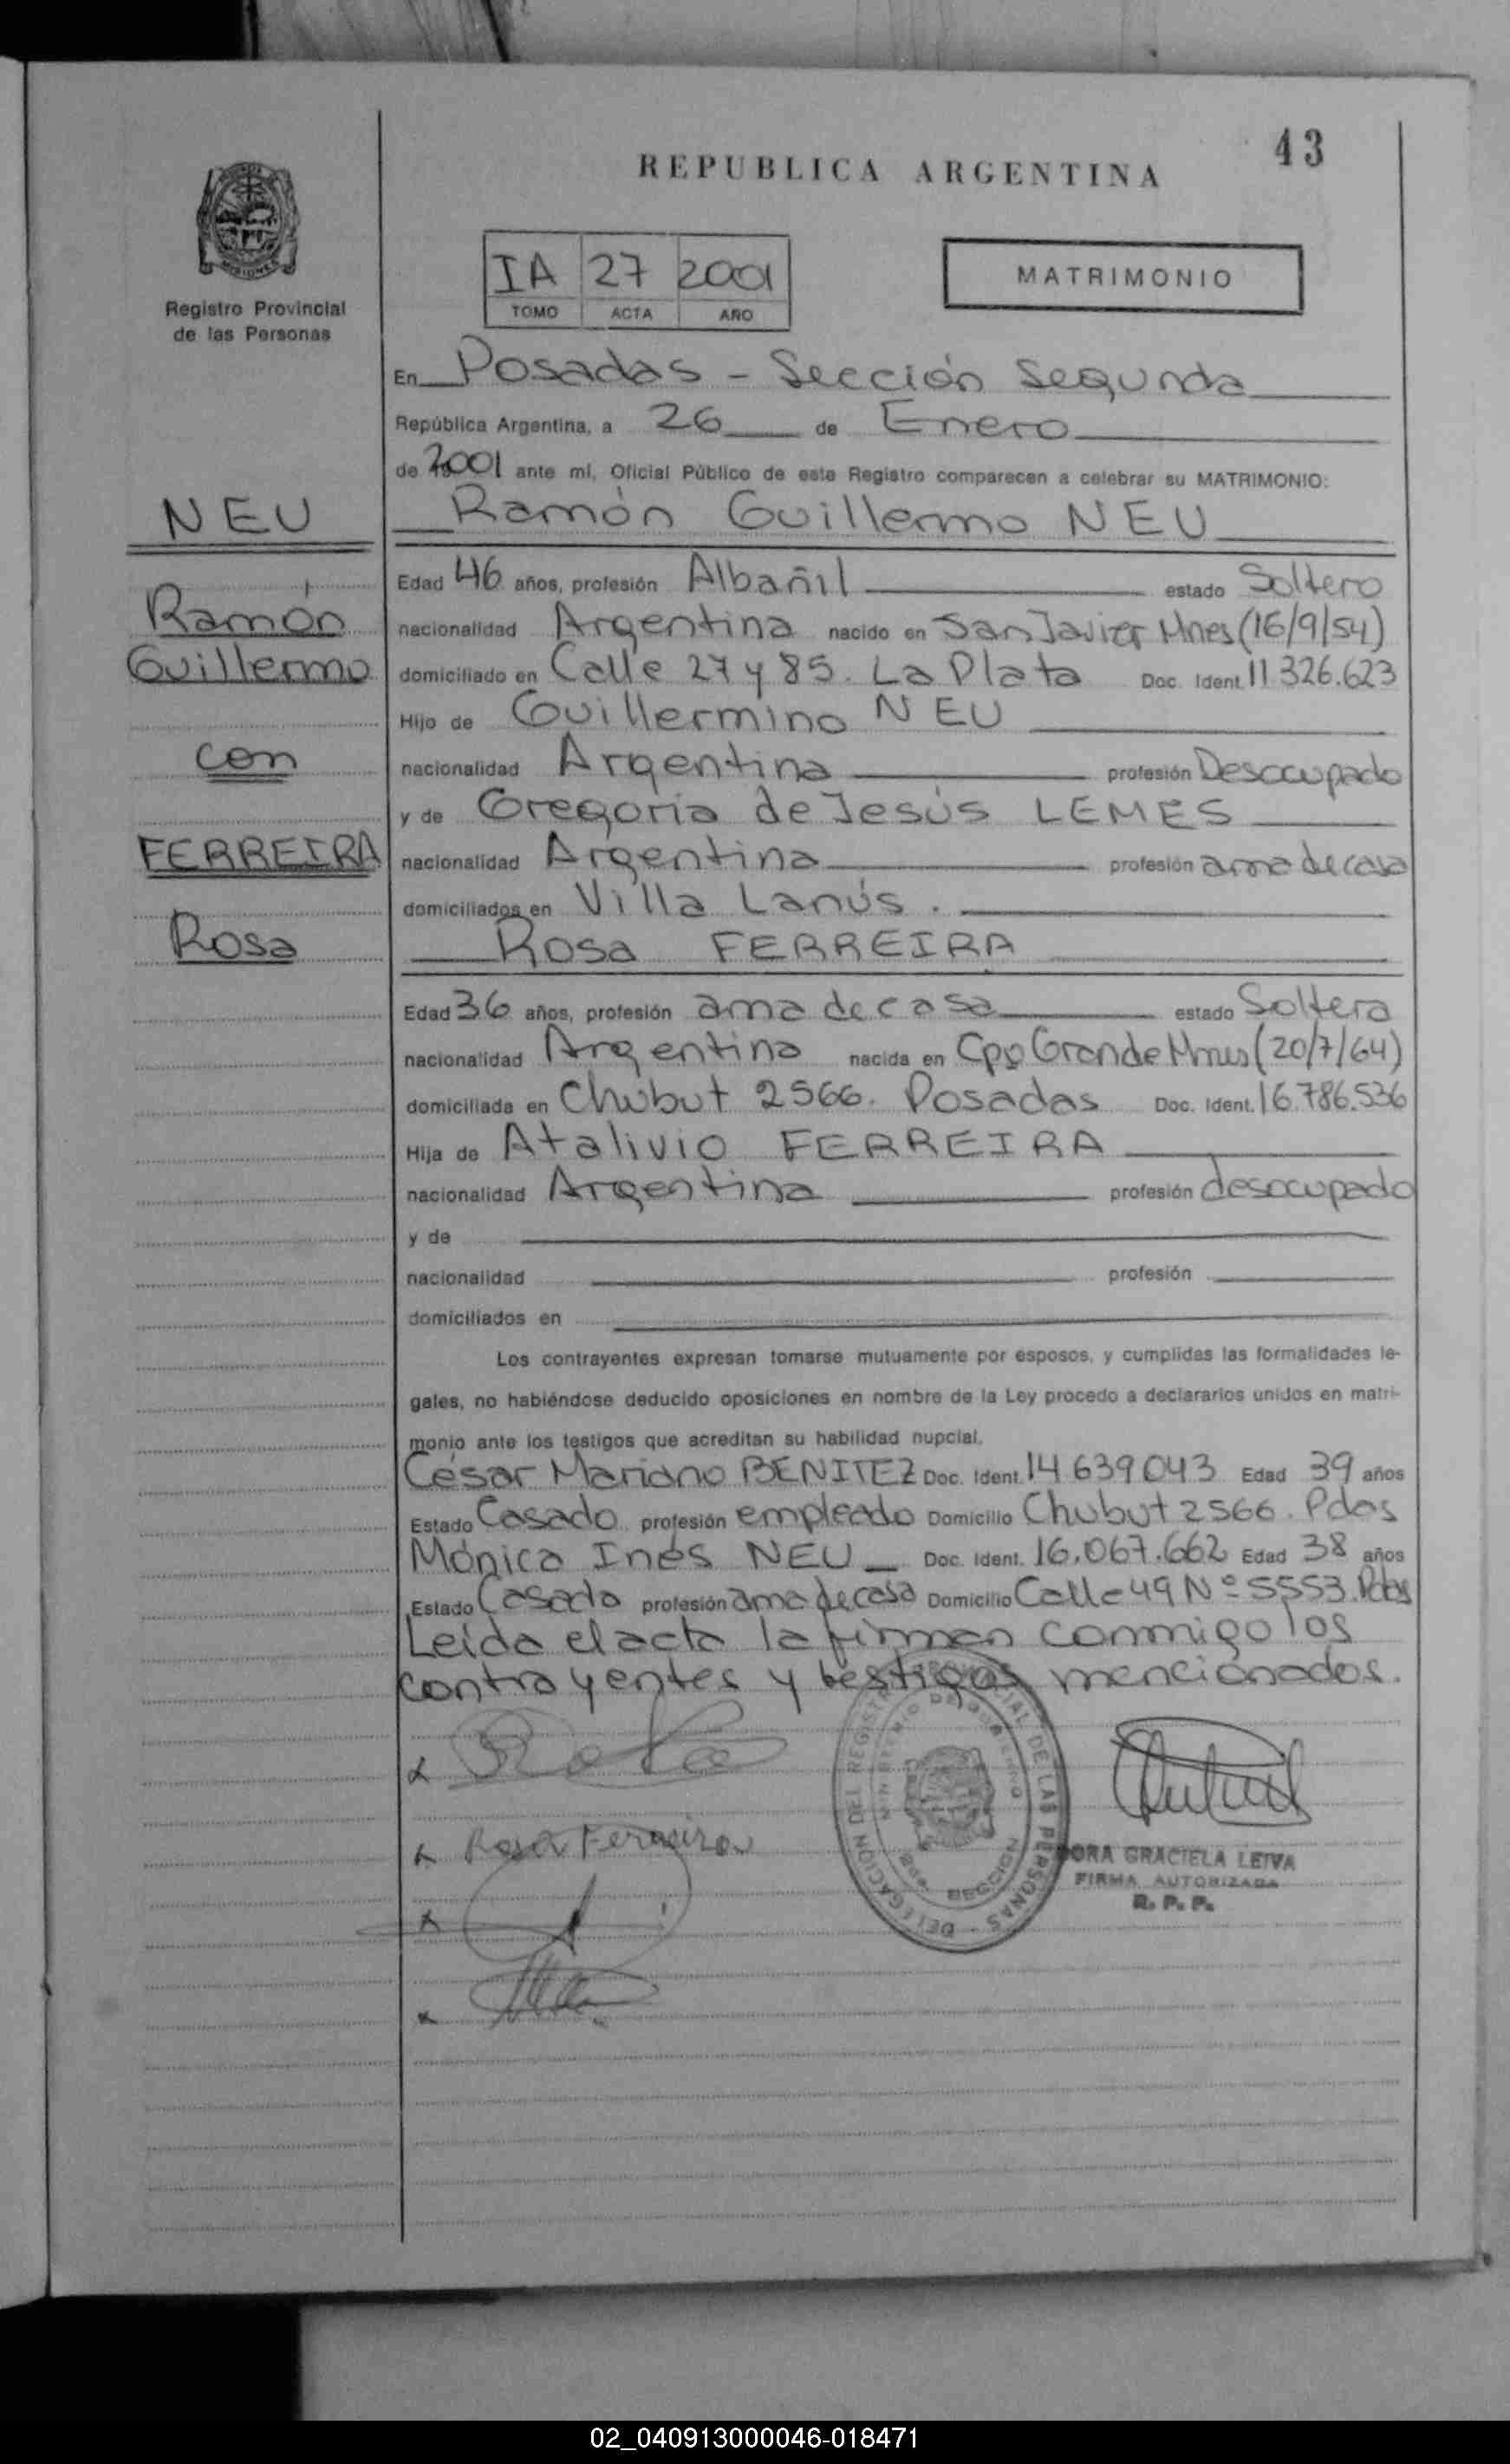 43
REPUBLICA ARGENTINA
MISIONES
Registro Provincial
de las Personas
IA 27 2001
TOMO ACTA AÑO
MATRIMONIO
En Posadas - Sección Segunda
República Argentina, a 26 de Enero
de 2001 ante mí, Oficial Público de este Registro comparecen a celebrar su MATRIMONIO:
NEU
Ramón Guillermo NEU
Edad 46 años, profesión Albañil estado Soltero
Ramón
nacionalidad Argentina nacido en San Javier Mnes (16/9/54)
Guillermo
domiciliado en Calle 27 y 85. La Plata Doc. Ident. 11 326.623
Hijo de Guillermino NEU
con
nacionalidad Argentina profesión Desocupado
y de Gregoria de Jesús LEMES
FERREIRA
nacionalidad Argentina profesión ama de casa
domiciliados en Villa Lanús.
Rosa
Rosa FERREIRA
Edad 36 años, profesión ama de casa estado Soltera
nacionalidad Argentina nacida en Cpo Grande Mnes (20/7/64)
domiciliada en Chubut 2566. Posadas Doc. Ident. 16.786.536
Hija de Atalivio FERREIRA
nacionalidad Argentina profesión desocupado
y de
nacionalidad profesión
domiciliados en
Los contrayentes expresan tomarse mutuamente por esposos, y cumplidas las formalidades le-
gales, no habiéndose deducido oposiciones en nombre de la Ley procedo a declararlos unidos en matri-
monio ante los testigos que acreditan su habilidad nupcial.
César Mariano BENITEZ Doc. Ident. 14 639043 Edad 39 años
Estado Casado profesión empleado Domicilio Chubut 2566. Pdas
Mónica Inés NEU Doc. Ident. 16.067.662 Edad 38 años
Estado Casada profesión ama de casa Domicilio Calle 49 Nº 5553. Pdas
Leída el acta la firman conmigo los
contrayentes y testigos mencionados.
DELEGACION DEL REGISTRO PROVINCIAL DE LAS PERSONAS
MINISTERIO DE GOBIERNO
SECCION
Rosa Ferreira
DORA GRACIELA LEIVA
FIRMA AUTORIZADA
R. P. P.
02_040913000046-018471